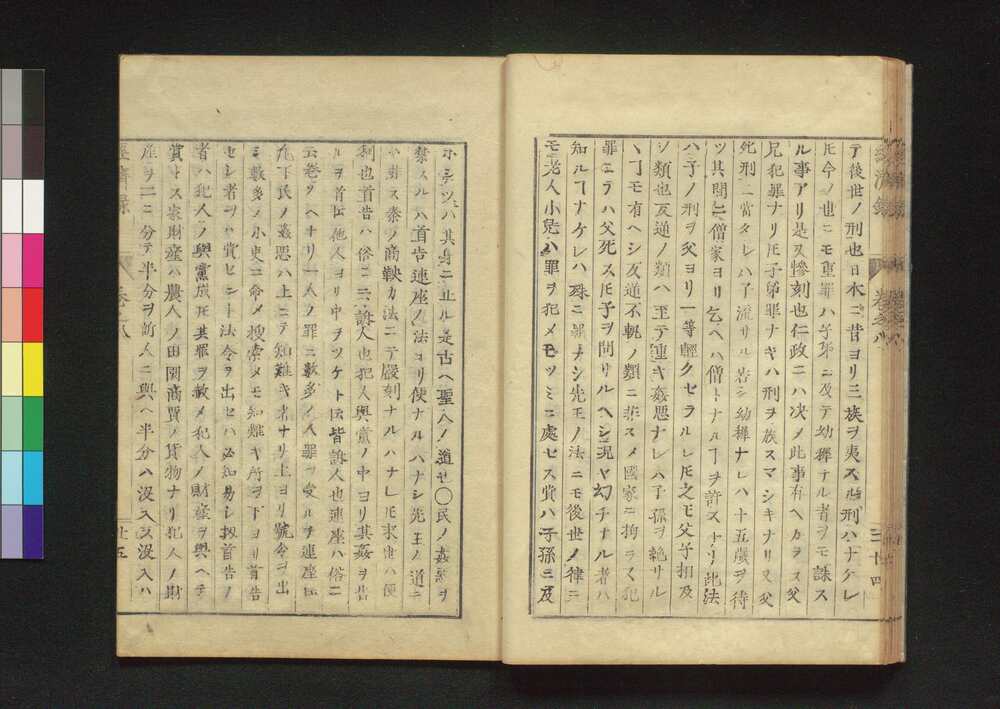 テ後世ノ刑也日本ニ昔ヨリ三族ヲ夷スル刑ハナケレ
𪜈今ノ世ニモ重罪ハ子弟ニ及テ幼穉ナル者ヲモ誅ス
ル事アリ是又慘刻也仁政ニハ决メ此事有ヘカラス父
兄犯罪ナリ𪜈子弟罪ナキハ刑ヲ族スマシキナリ又父
死刑ニ當タレハ子流サル若シ幼穉ナレハ十五歲ヲ待
ツ其間ニ僧家ヨリ乞ヘハ僧トナルヿヲ許スナリ此法
ハ子ノ刑ヲ父ヨリ一等輕クセラルレ𪜈之モ父子相及
ソ類也反逆ノ類ハ至テ重キ姦悪ナレハ子孫ヲ絶サル
ヽヿモ有ヘシ反逆不軌ノ類ニ非スメ國家ニ拘ラヌ犯
罪ニテハ父死ス𪜈子ヲ問サルヘシ況ヤ幼チナル者ハ
知ルヿナケレハ殊ニ罪ナシ先王ノ法ニモ後世ノ律ニ
モ老人小兒ハ罪ヲ犯メモツミニ處セス賞ハ子孫ニ及
ホシツミハ其身ニ止ル是古ヘ聖人ノ道也〇民ノ姦惡ヲ
禁スルハ首告連座ノ法ヨリ便ナルハナシ先王ノ道ニ
ハ非ス秦ノ商鞅カ法ニテ嚴刻ナルハナレ𪜈末世ハ便
利也首告ハ俗ニ云訴人也犯人與黨ノ中ヨリ其姦ヲ告
ルヲ首𪜈他人ヨリ申ヲツケト云皆訴人也連座ハ俗ニ
云卷ヲヘナリ一人ノ罪ニ數多ノ人罪ヲ受ルヲ連座𪜈
凡下民ノ姦悪ハ上ニテ知難キ者ナリ上ヨリ號令ヲ出
シ數多ノ小吏ニ命メ搜索メモ知難キ所ヲ下ヨリ首告
セシ者ヲハ賞セント法令ヲ出セハ必知易シ扨首告ノ
者ハ犯人ノ與黨成𪜈其罪ヲ赦メ犯人ノ財產ヲ與ヘテ
賞トス家財產ハ農人ノ田園商賈ノ貨物ナリ犯人ノ財
產ヲ二ニ分テ半分ヲ訴人ニ與ヘ半分ハ沒入ス沒入ハ
經濟錄
卷之八
三十四
卅五